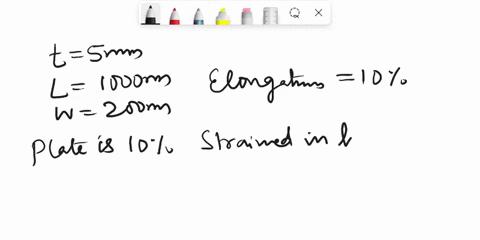 t=5mm
L=1000mm
W=200mm
Elongations=10%
Plate is 10% Strained in l